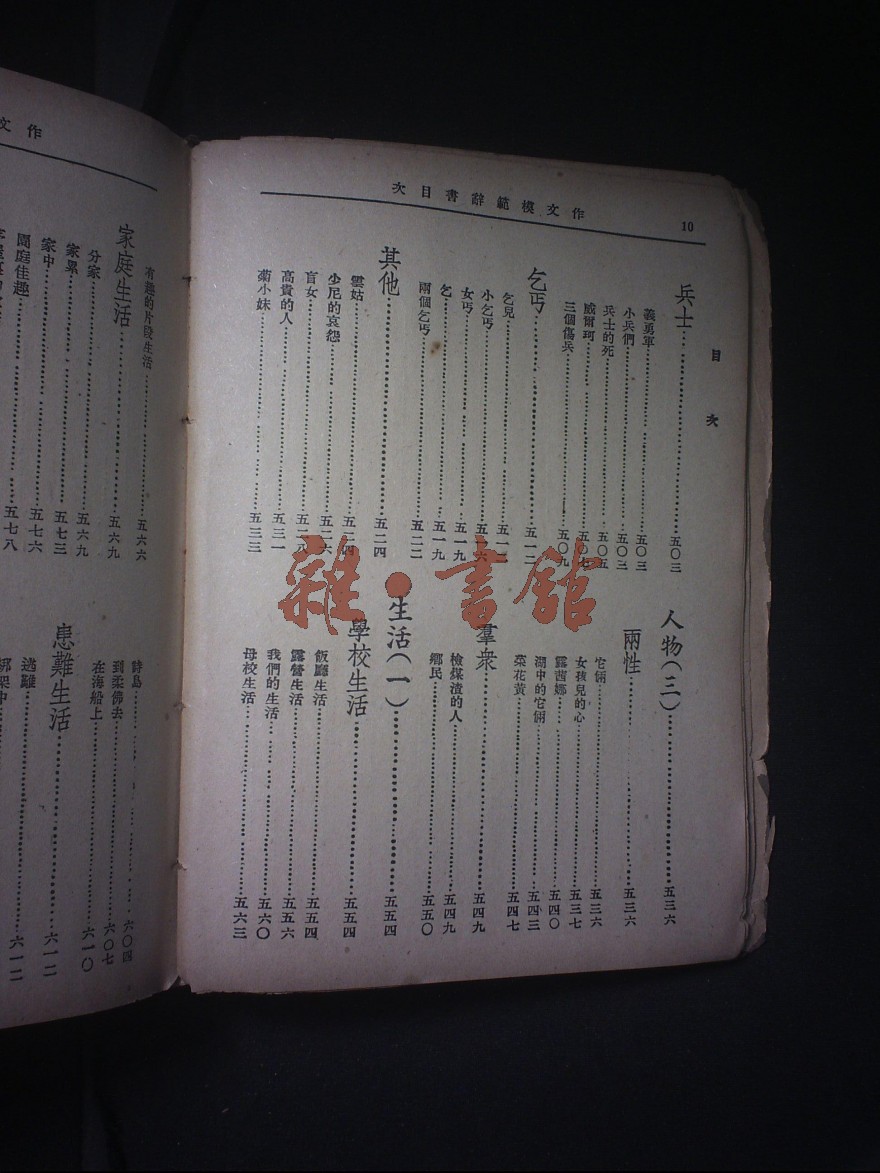 10
作文模範辭書目次
目次
兵士……五〇三
義勇軍……五〇三
小兵們……五〇三
兵士的死……五〇五
威爾珂……五〇七
三個傷兵……五〇九
乞丐……五一二
乞兒……五一二
小乞丐……五一六
女丐……五一九
乞……五一九
兩個乞丐……五二二
其他……五二四
雲姑……五二四
少尼的哀怨……五二六
盲女……五二八
高貴的人……五三一
菊小妹……五三三
人物(三)……五三六
兩性……五三六
它倆……五三六
女孩兒的心……五三七
露茜娜……五四〇
湖中的它倆……五四三
菜花黃……五四七
羣衆……五四九
檢煤渣的人……五四九
鄉民……五五〇
生活(一)……五五四
學校生活……五五四
飯廳生活……五五四
露營生活……五五六
我們的生活……五六〇
母校生活……五六三
雜·書館
作文
有趣的片段生活……五六六
家庭生活……五六九
分家……五六九
家累……五七三
家中……五七六
團庭佳趣……五七八
詩島……六〇四
到柔佛去……六〇七
在海船上……六一〇
患難生活……六一二
逃難……六一二
綁架中